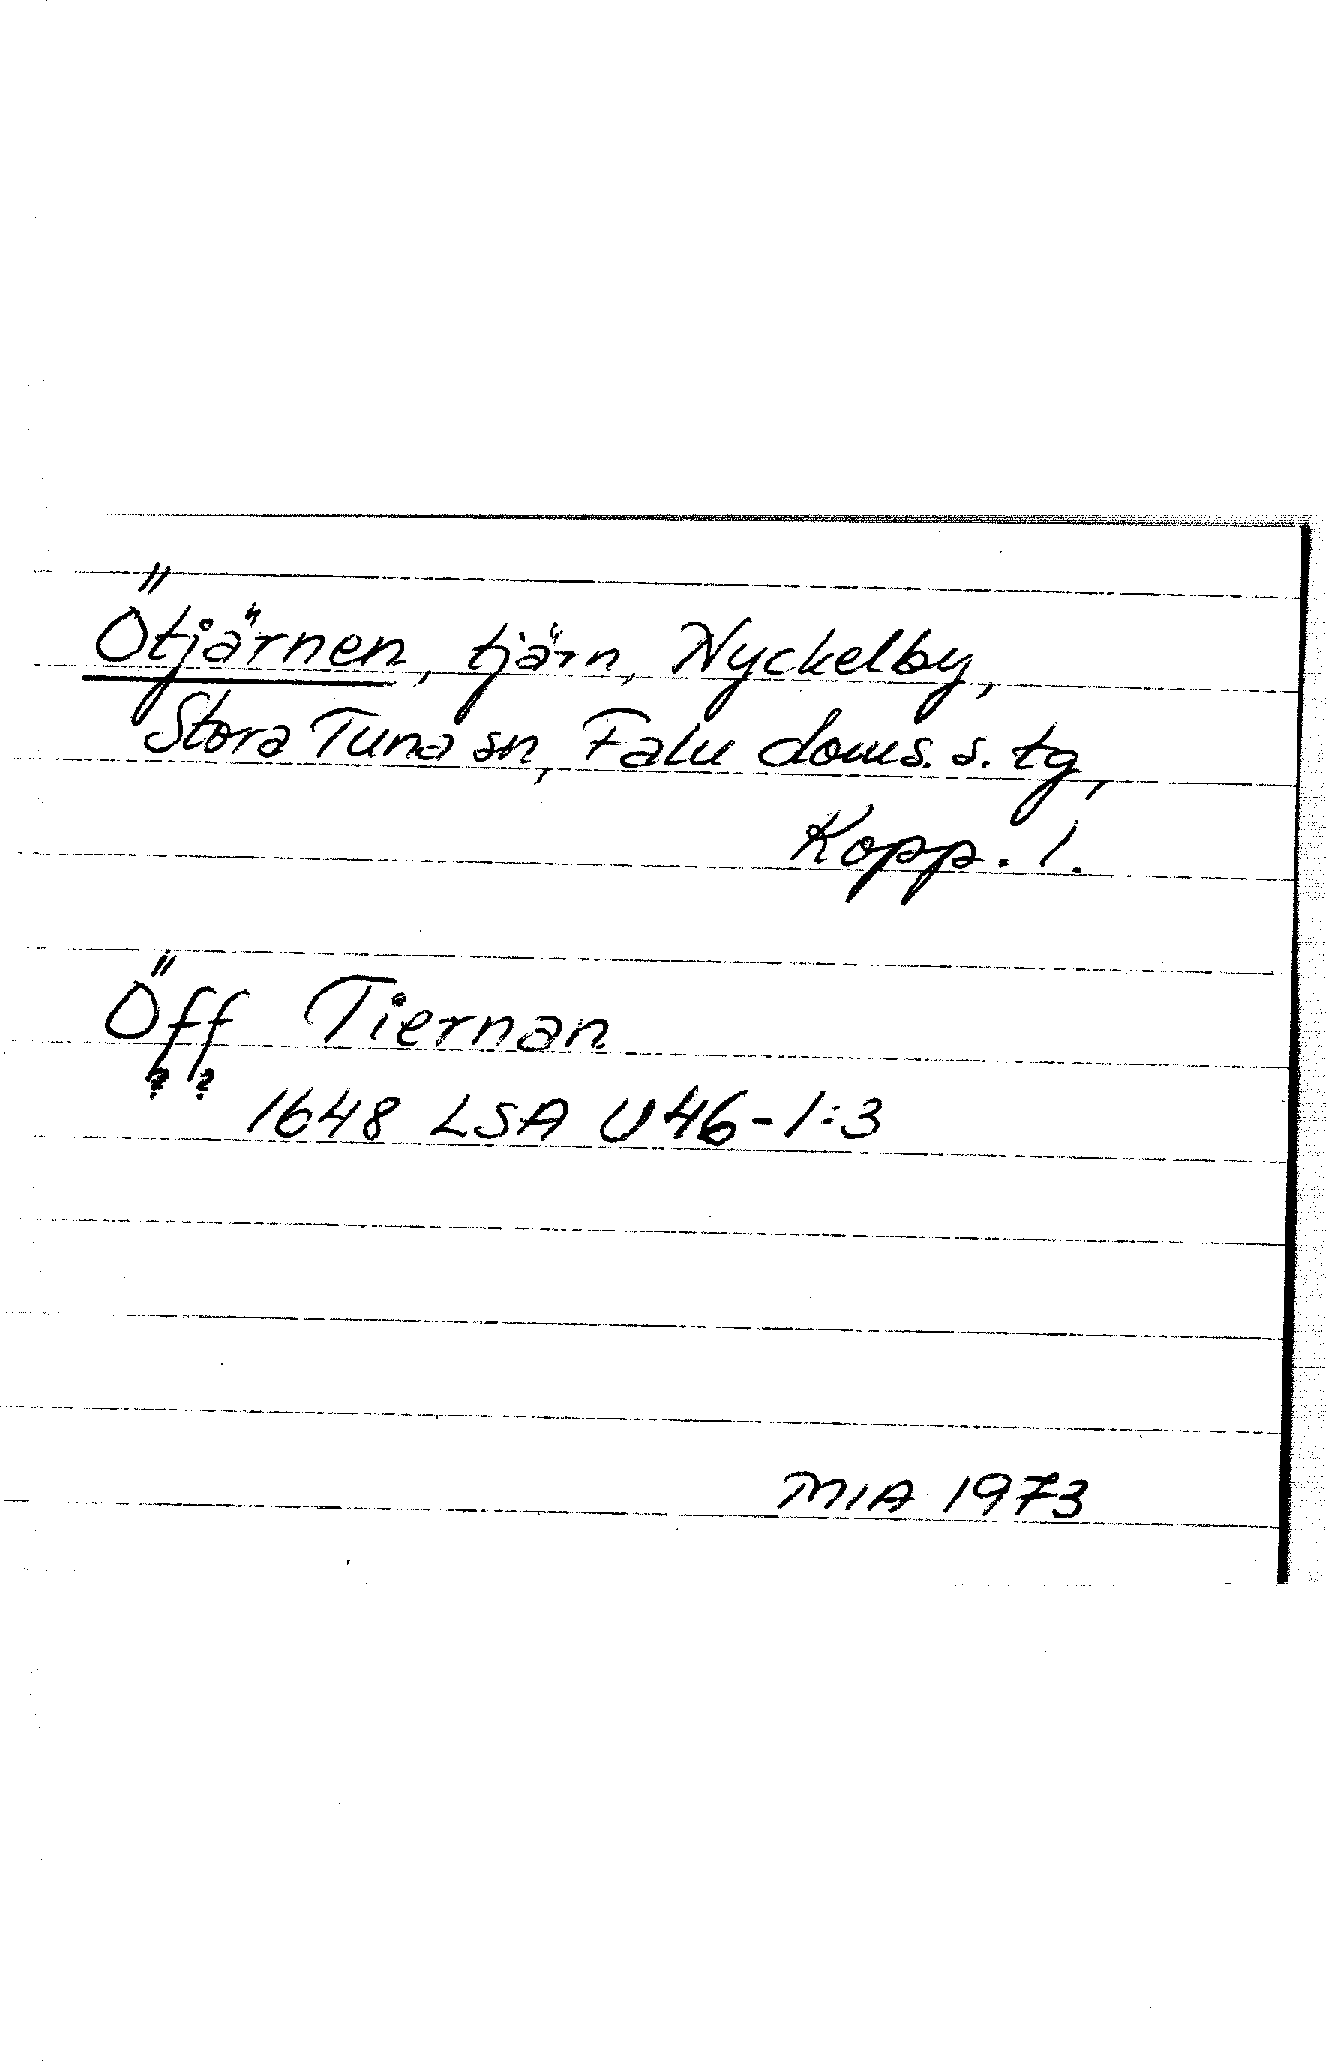 Ötjärnen, tjärn, Nyckelby,
Stora Tuna sn, Falu doms. s. tg,
Kopp. l.
Öff Tiernan
? ?
1648 LSA U46-1:3
MIA 1973